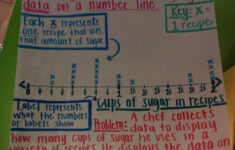 data on a number line
Key: x =
1 recipe
Each x represents
one recipe that uses
that amount of sugar.
Label represents
what the numbers
or labels show
cups of sugar in recipes
Problem: A chef collects
data to display
how many cups of sugar he uses in a
variety of recipes. He displays the data on